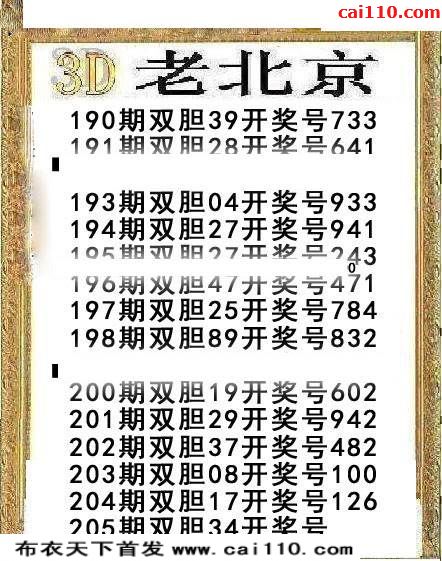 cai110.com
3D 老北京
190期双胆39开奖号733
191期双胆28开奖号641
193期双胆04开奖号933
194期双胆27开奖号941
195期双胆27开奖号243
0
196期双胆47开奖号471
197期双胆25开奖号784
198期双胆89开奖号832
200期双胆19开奖号602
201期双胆29开奖号942
202期双胆37开奖号482
203期双胆08开奖号100
204期双胆17开奖号126
205期双胆34开奖号
布衣天下首发 www.cai110.com